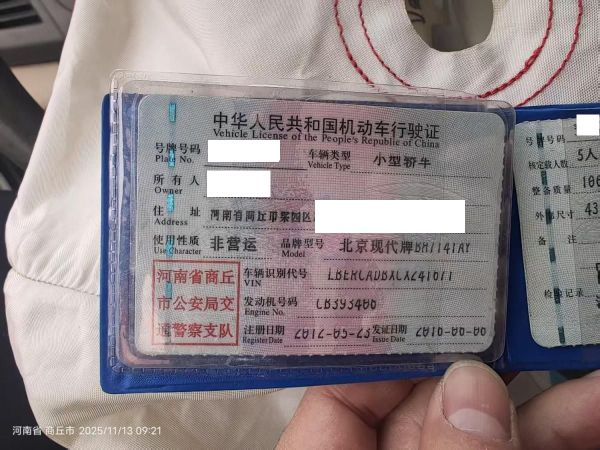 中华人民共和国机动车行驶证
Vehicle License of the People's Republic of China
号牌号码
Plate No.
车辆类型 小型轿车
Vehicle Type
所有人
Owner
住址 河南省商丘市梁园区
Address
使用性质 非营运 品牌型号 北京现代牌BH7141AY
Use Character Model
河南省商丘
市公安局交
通警察支队
车辆识别代号 LBERCADBXCX241677
VIN
发动机号码 CB393406
Engine No.
注册日期 2012-05-23 发证日期 2016-06-06
Register Date Issue Date
号牌号码
核定载人数 5人
整备质量
外廓尺寸 43
检验记录
河南省 商丘市 2025/11/13 09:21